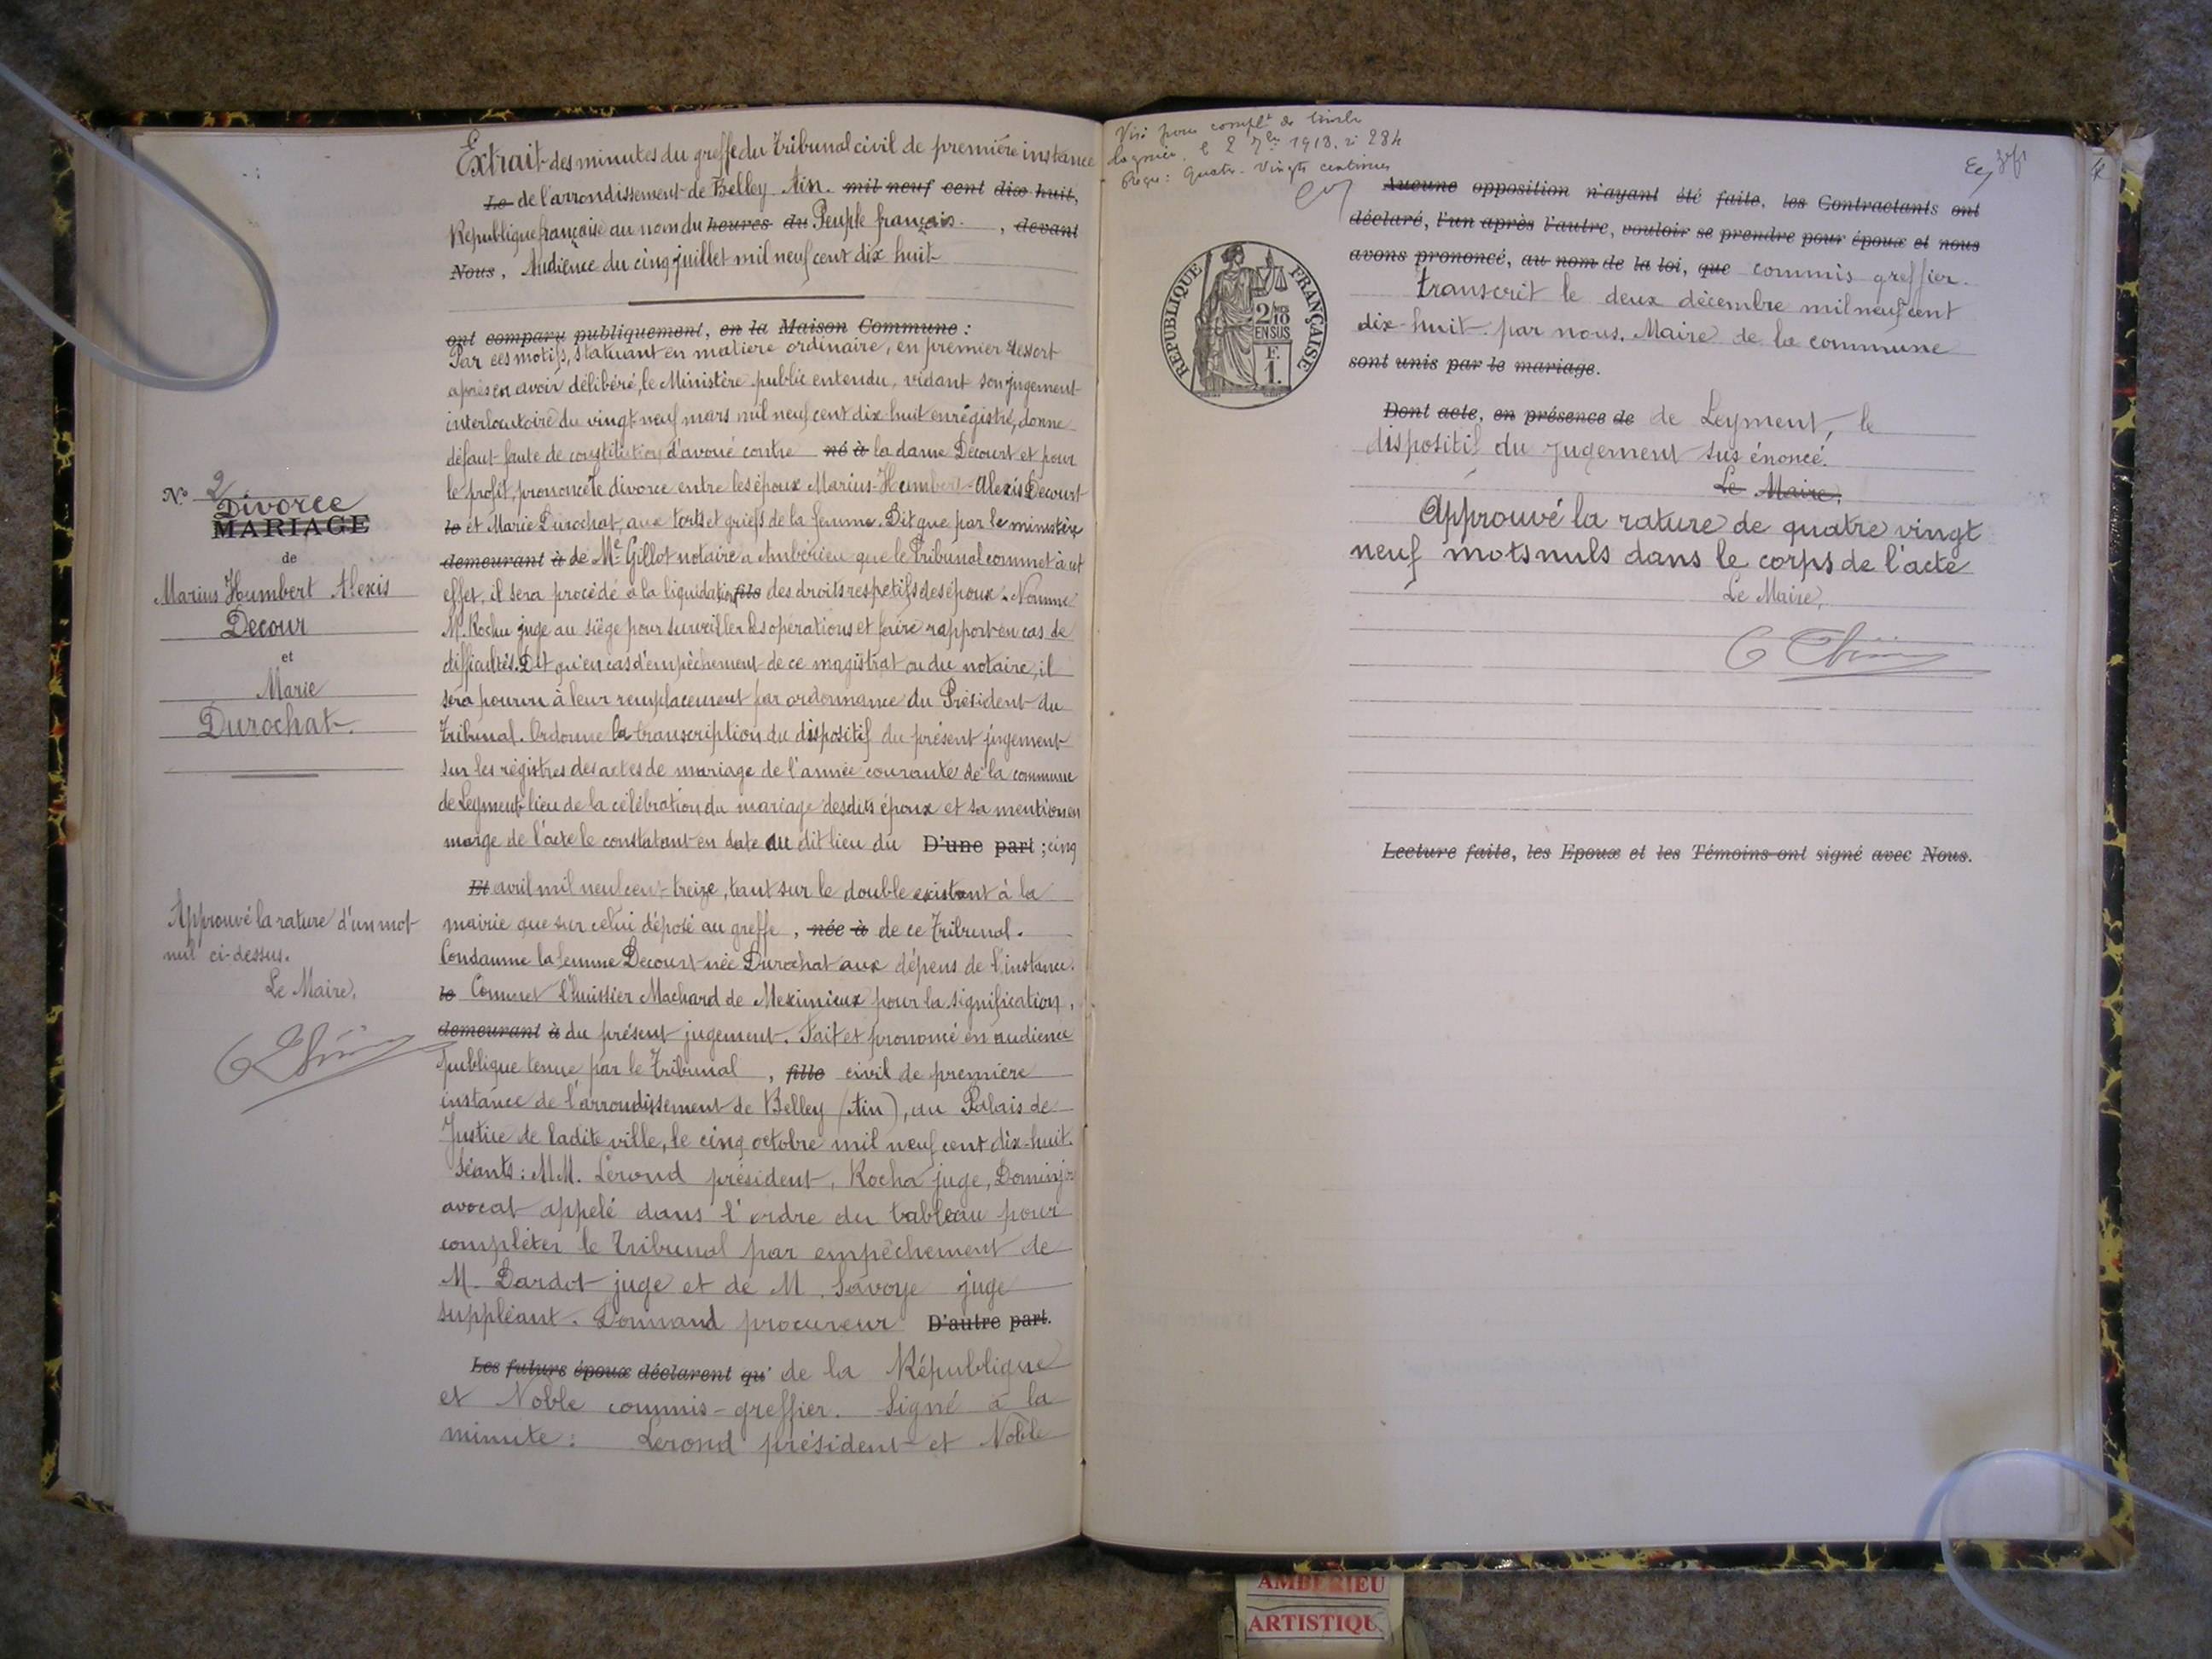 Extrait des minutes du greffe du Tribunal civil de première instance
Le de l'arrondissement de Belley Ain. mil neuf cent dix huit,
République française au nom du heures du Peuple français. , devant
Nous, Audience du cinq juillet mil neuf cent dix huit
ont comparu publiquement, en la Maison Commune :
Par ces motifs, statuant en matière ordinaire, en premier ressort
après en avoir délibéré, le Ministère public entendu, vidant son jugement
interlocutoire du vingt neuf mars mil neuf cent dix-huit enregistré, donne
défaut faute de constitution d'avoué contre né à la dame Decourt et pour
le profit, prononce le divorce entre les époux Marius-Humbert-Alexis Decourt
le et Marie Durochat, aux torts et griefs de la femme. Dit que par le ministère
demeurant à de Me Gillot notaire à Ambérieu que le Tribunal commet à cet
effet, il sera procédé à la liquidation fils des droits respetifs des époux. Nomme
M. Rochu juge au siège pour surveiller les opérations et faire rapport en cas de
difficultés. Dit qu'en cas d'empêchement de ce magistrat ou du notaire, il
sera pourvu à leur remplacement par ordonnance du Président du
Tribunal. Ordonne la transcription du dispositif du présent jugement
sur les régistres des actes de mariage de l'année courante de la commune
de Leyment lieu de la célébration du mariage desdits époux et sa mention en
marge de l'acte le constatant en date au dit lieu du D'une part ; cinq
Et avril mil neuf cent treize, tant sur le double existant à la
mairie que sur celui déposé au greffe , née à de ce Tribunal.
Condamne la femme Decourt née Durochat aux dépens de l'instance.
le Commet l'huissier Machard de Meximieux pour la signification,
demeurant à du présent jugement. Fait et prononcé en audience
publique tenue par le Tribunal , fille civil de première
instance de l'arrondissement de Belley (Ain), au Palais de
Justice de ladite ville, le cinq octobre mil neuf cent dix-huit.
Séants : M.M. Lerond président, Rocha juge,
avocat appelé dans l'ordre du tableau pour
compléter le Tribunal par empêchement de
M. Dardot juge et de M. Savoye juge
suppléant. procureur D'autre part.
Les futurs époux déclarent qu' de la République
et Noble commis-greffier. Signé à la
minute : Lerond président et Noble
No 2
Divorce
MARIAGE
de
Marius Humbert Alexis
Decour
et
Marie
Durochat.
Approuvé la rature d'un mot
nul ci-dessus.
Le Maire,
Visé pour complt de timbre
le 2 1918. no 284
Reçu : Quatre-Vingts centimes
RÉPUBLIQUE FRANÇAISE
2/10
EN SUS
F.
1.
Aucune opposition n'ayant été faite, les Contractants ont
déclaré, l'un après l'autre, vouloir se prendre pour époux et nous
avons prononcé, au nom de la loi, que commis greffier.
Transcrit le deux décembre mil neuf cent
dix-huit par nous, Maire de la commune
sont unis par le mariage.
Dont acte, en présence de de Leyment, le
dispositif du jugement sus énoncé.
Le Maire,
Approuvé la rature de quatre vingt
neuf mots nuls dans le corps de l'acte
Le Maire,
Lecture faite, les Epoux et les Témoins ont signé avec Nous.
AMBERIEU
ARTISTIQU